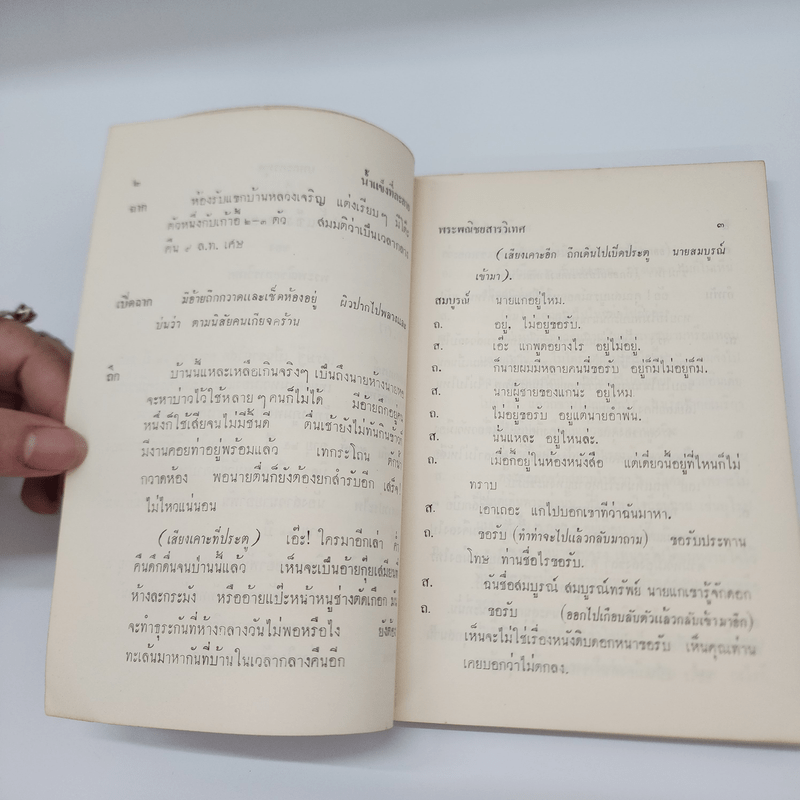 ๒
น้ำแข็งที่ละลาย
ฉาก ห้องรับแขกบ้านหลวงเจริญ แต่งเรียบๆ มีโต๊ะ
ตัวหนึ่งกับเก้าอี้ ๒–๓ ตัว สมมติว่าเป็นเวลากลาง
คืน ๙ ล.ท. เศษ
เปิดฉาก มีอ้ายถึกกวาดและเช็ดห้องอยู่ ผิวปากไปพลางและ
บ่นว่า ตามนิสัยคนเกียจคร้าน
ถึก บ้านนี้แหละเหลือเกินจริงๆ เป็นถึงนายห้างนายหอ
จะหาบ่าวไว้ใช้หลายๆ คนก็ไม่ได้ มีอ้ายถึกอยู่คน
หนึ่งก็ใช้เสียจนไม่มีชิ้นดี ตื่นเช้ายังไม่ทันกินข้าว
มีงานคอยท่าอยู่พร้อมแล้ว เทกระโถน ตักน้ำ
กวาดห้อง พอนายตื่นก็ยังต้องยกสำรับอีก เสร็จ
ไม่ไหวแน่นอน
(เสียงเคาะที่ประตู) เอ๊ะ! ใครมาอีกเล่า ค่ำ
คืนดึกดื่นจนป่านนี้แล้ว เห็นจะเป็นอ้ายกุ๊ยเสมียน
ห้างละกระมัง หรืออ้ายแป๊ะหน้าหนูช่างตัดเกือก
จะทำธุระกันที่ห้างกลางวันไม่พอหรือไง ยังต้อง
ทะเล้นมาหากันที่บ้านในเวลากลางคืนอีก
พระพณิชยสารวิเทศ
๓
(เสียงเคาะอีก ถึกเดินไปเปิดประตู นายสมบูรณ์
เข้ามา).
สมบูรณ์ นายแกอยู่ไหม.
ถ. อยู่. ไม่อยู่ขอรับ.
ส. เอ๊ะ แกพูดอย่างไร อยู่ไม่อยู่.
ถ. ก็นายผมมีหลายคนนี่ขอรับ อยู่ก็มีไม่อยู่ก็มี.
ส. นายผู้ชายของแกน่ะ อยู่ไหม
ถ. ไม่อยู่ขอรับ อยู่แต่นายอำพัน.
ส. นั่นแหละ อยู่ไหนล่ะ.
ถ. เมื่อกี้อยู่ในห้องหนังสือ แต่เดี๋ยวนี้อยู่ที่ไหนก็ไม่
ทราบ
ส. เอาเถอะ แกไปบอกเขาทีว่าฉันมาหา.
ถ. ขอรับ (ทำท่าจะไปแล้วกลับมาถาม) ขอรับประทาน
โทษ ท่านชื่อไรขอรับ.
ส. ฉันชื่อสมบูรณ์ สมบูรณ์ทรัพย์ นายแกเขารู้จักดอก
ถ. ขอรับ (ออกไปเกือบลับตัวแล้วกลับเข้ามาอีก)
เห็นจะไม่ใช่เรื่องหนังดิบดอกหนาขอรับ เห็นคุณท่าน
เคยบอกว่าไม่ตกลง.